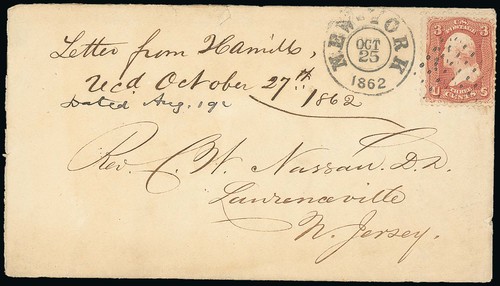 Letter from Hamill,
recd. October 27th
1862
Dated Aug. 19
NEW YORK
OCT
25
1862
3 U.S. 3
THREE
U CENTS S
Rev. C. W. Nassau. D.D.
Lawrenceville
N. Jersey.